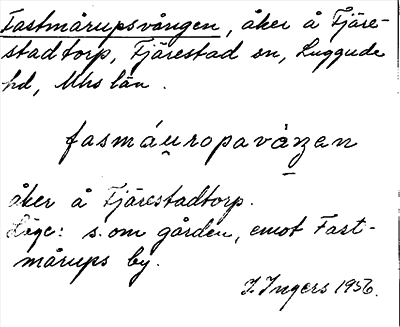 Fastmårupsvången, åker å Fjäre-
stadtorp, Fjärestad sn, Luggude
hd, Mhs län.
fasmáuropavåŋen
åker å Fjärestadtorp.
Läge: s. om gården, emot Fast-
mårups by.
I. Ingers 1956.